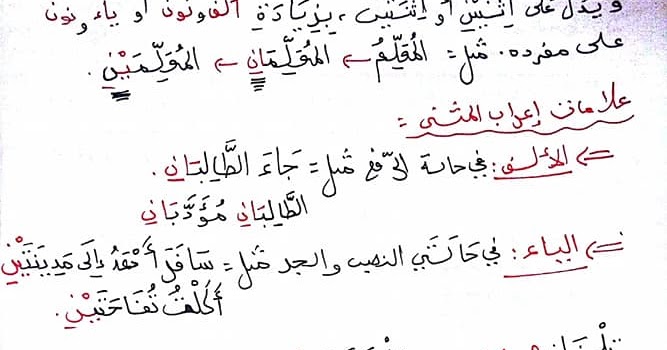 و يدل على اثنين أو اثنتين ، بزيادة ألف ونون أو ياء ونون
على مفرده . مثل = المُعَلِّمُ ← المُعَلِّمَانِ ← المُعَلِّمَيْنِ .
علامات إعراب المثنى =
⇐ الألف : في حالة الرّفع مثل = جَاءَ الطَّالِبَانِ .
الطَّالِبَانِ مُؤَدَّبَانِ
⇐ الياء : في حَالَتَي النصب والجر مثل = سَافَرَ أَحْمَدُ إِلَى مَدِينَتَيْنِ
أَكَلْتُ تُفَّاحَتَيْنِ .